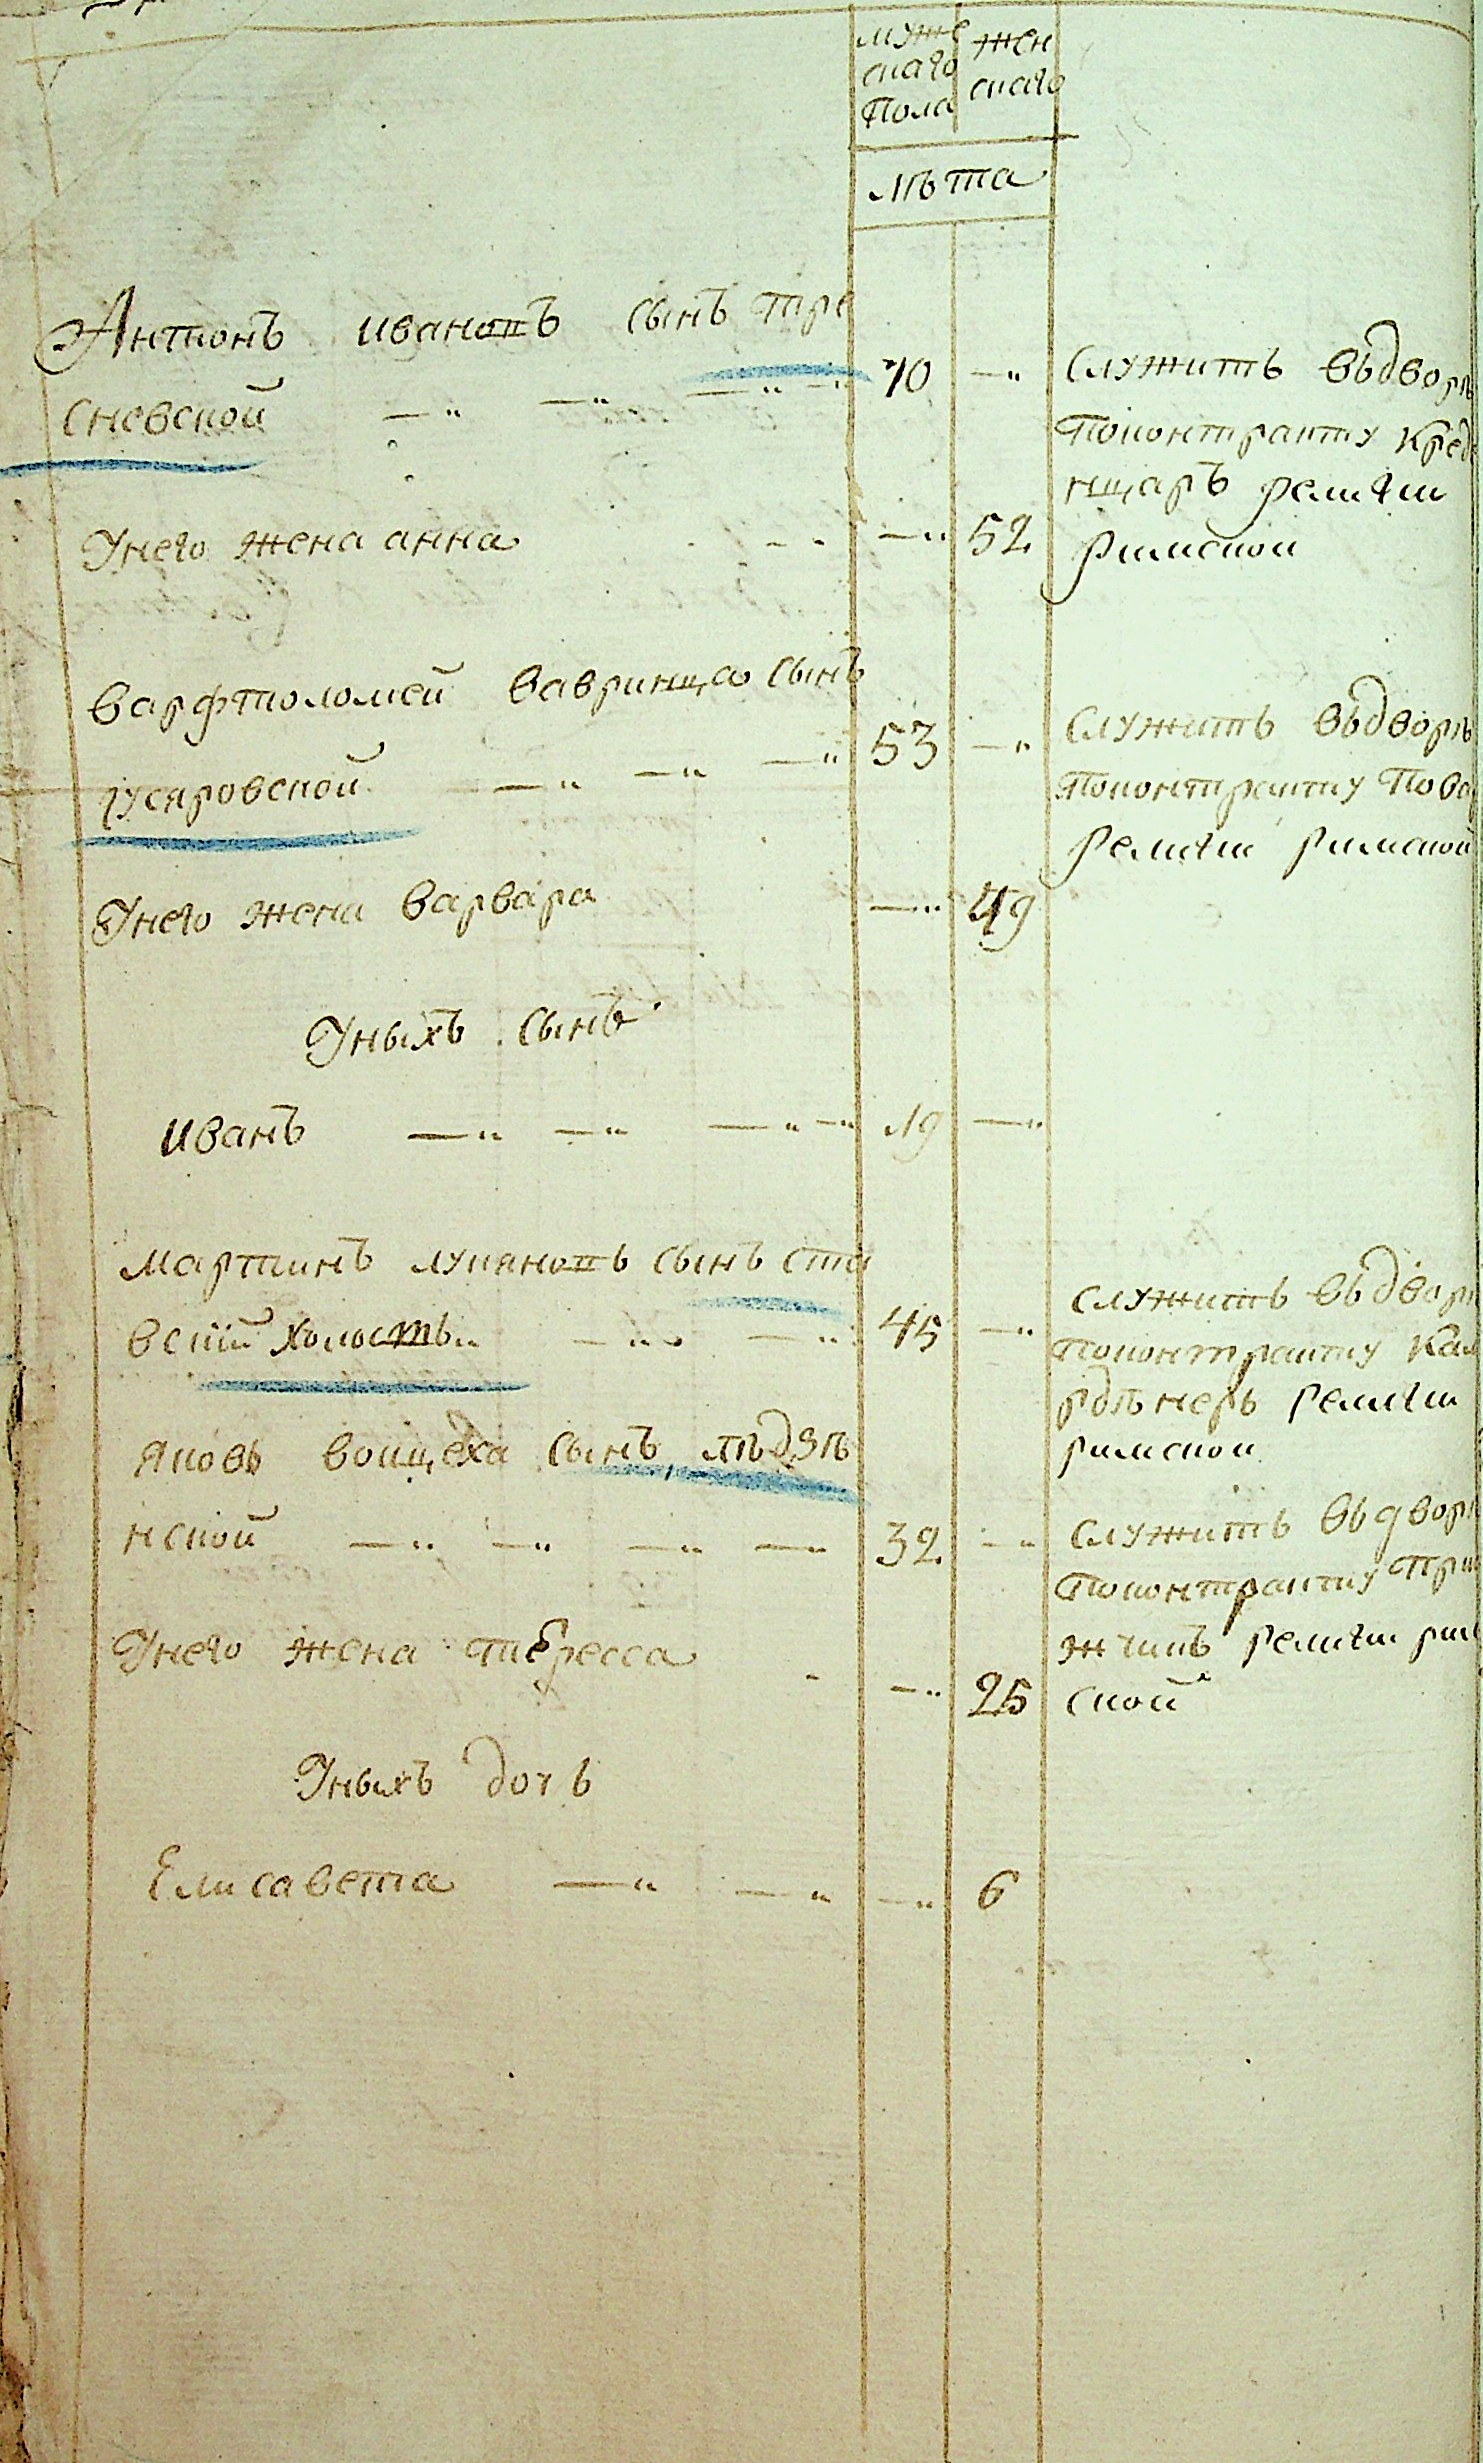 муже
скаго
Пола
жен
скаго
лѣта
Антонъ ивановъ сынъ тре
сневской —„ —„ —„ —„ 70 —„
Служитъ вьдворѣ
Поконтракту Креде
нцаръ религии
римской
Унего жена анна —„ 52
варфтоломей вавринца сынъ
гусяровской —„ —„ —„ 53 —„
Служитъ вьдворѣ
Поконтракту Пова
религии римской
Унего жена варвара —„ 49
Уныхъ сынъ
иванъ —„ —„ —„ —„ 19 —„
мартинъ лукяновъ сынъ ста
вский холостъ„ —„ —„ 45 —„
служитъ вьдвор
Поконтракту Кам
рдѣнеръ религии
римской
яковъ воицеха сынъ лѣдзѣ
нской —„ —„ —„ —„ 32 —„
служитъ вьдвор
Поконтракту При
жчикъ религии рим
ской
Унего жена тересса —„ 25
Уныхъ дочь
Елисавета —„ —„ —„ 6